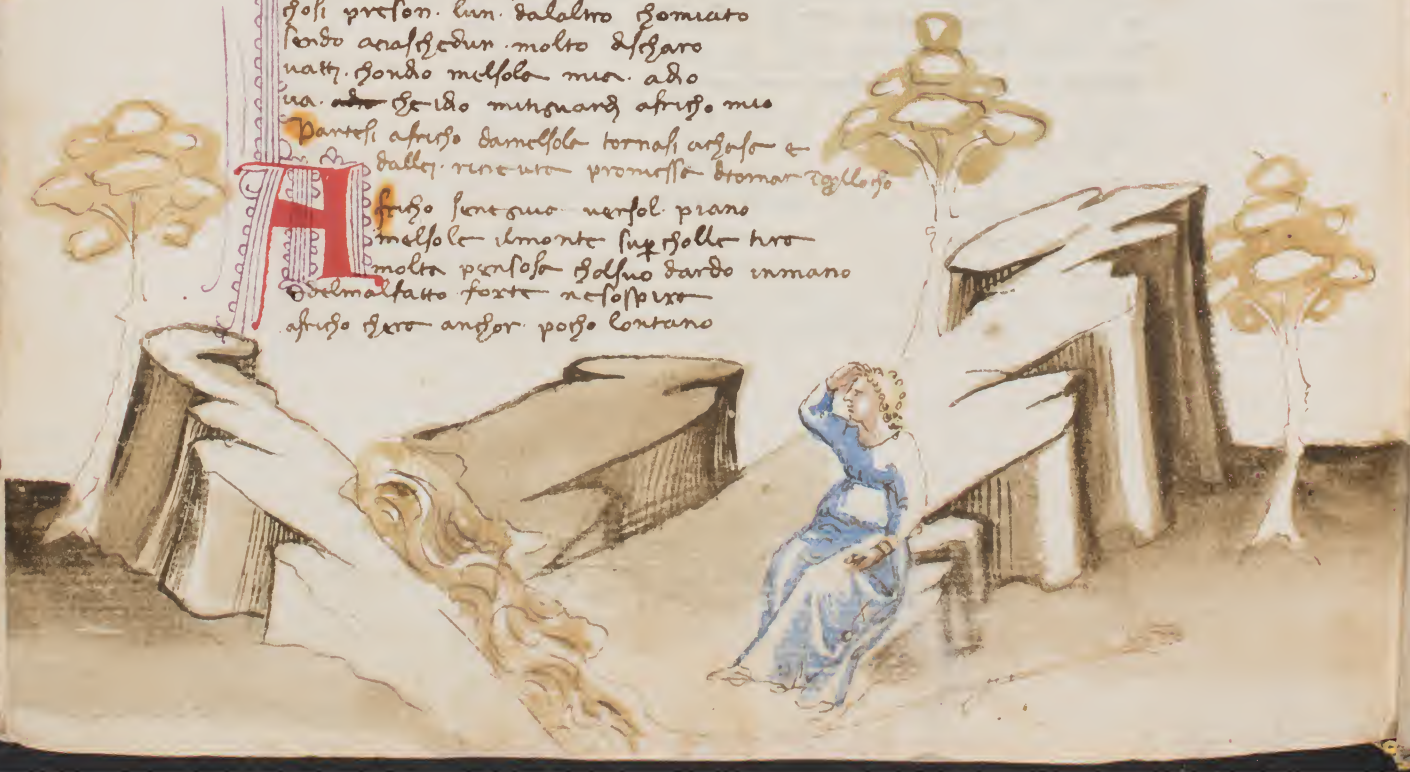 chosi preson. lun. dalaltro chomiato
sendo aciaschedun. molto discharo
vatti. chondio mensola mia. adio
va. che idio mitiguardi africho mio
Partesi africho damensola tornasi achasa e
dallei. ricieuta promessa ditornar
Africho senegiva. versol. piano
mensola ilmonte super cholle tira
molta pensosa cholsuo dardo inmano
edelmalfatto forte nesospira
africho chera anchor. pocho lontano